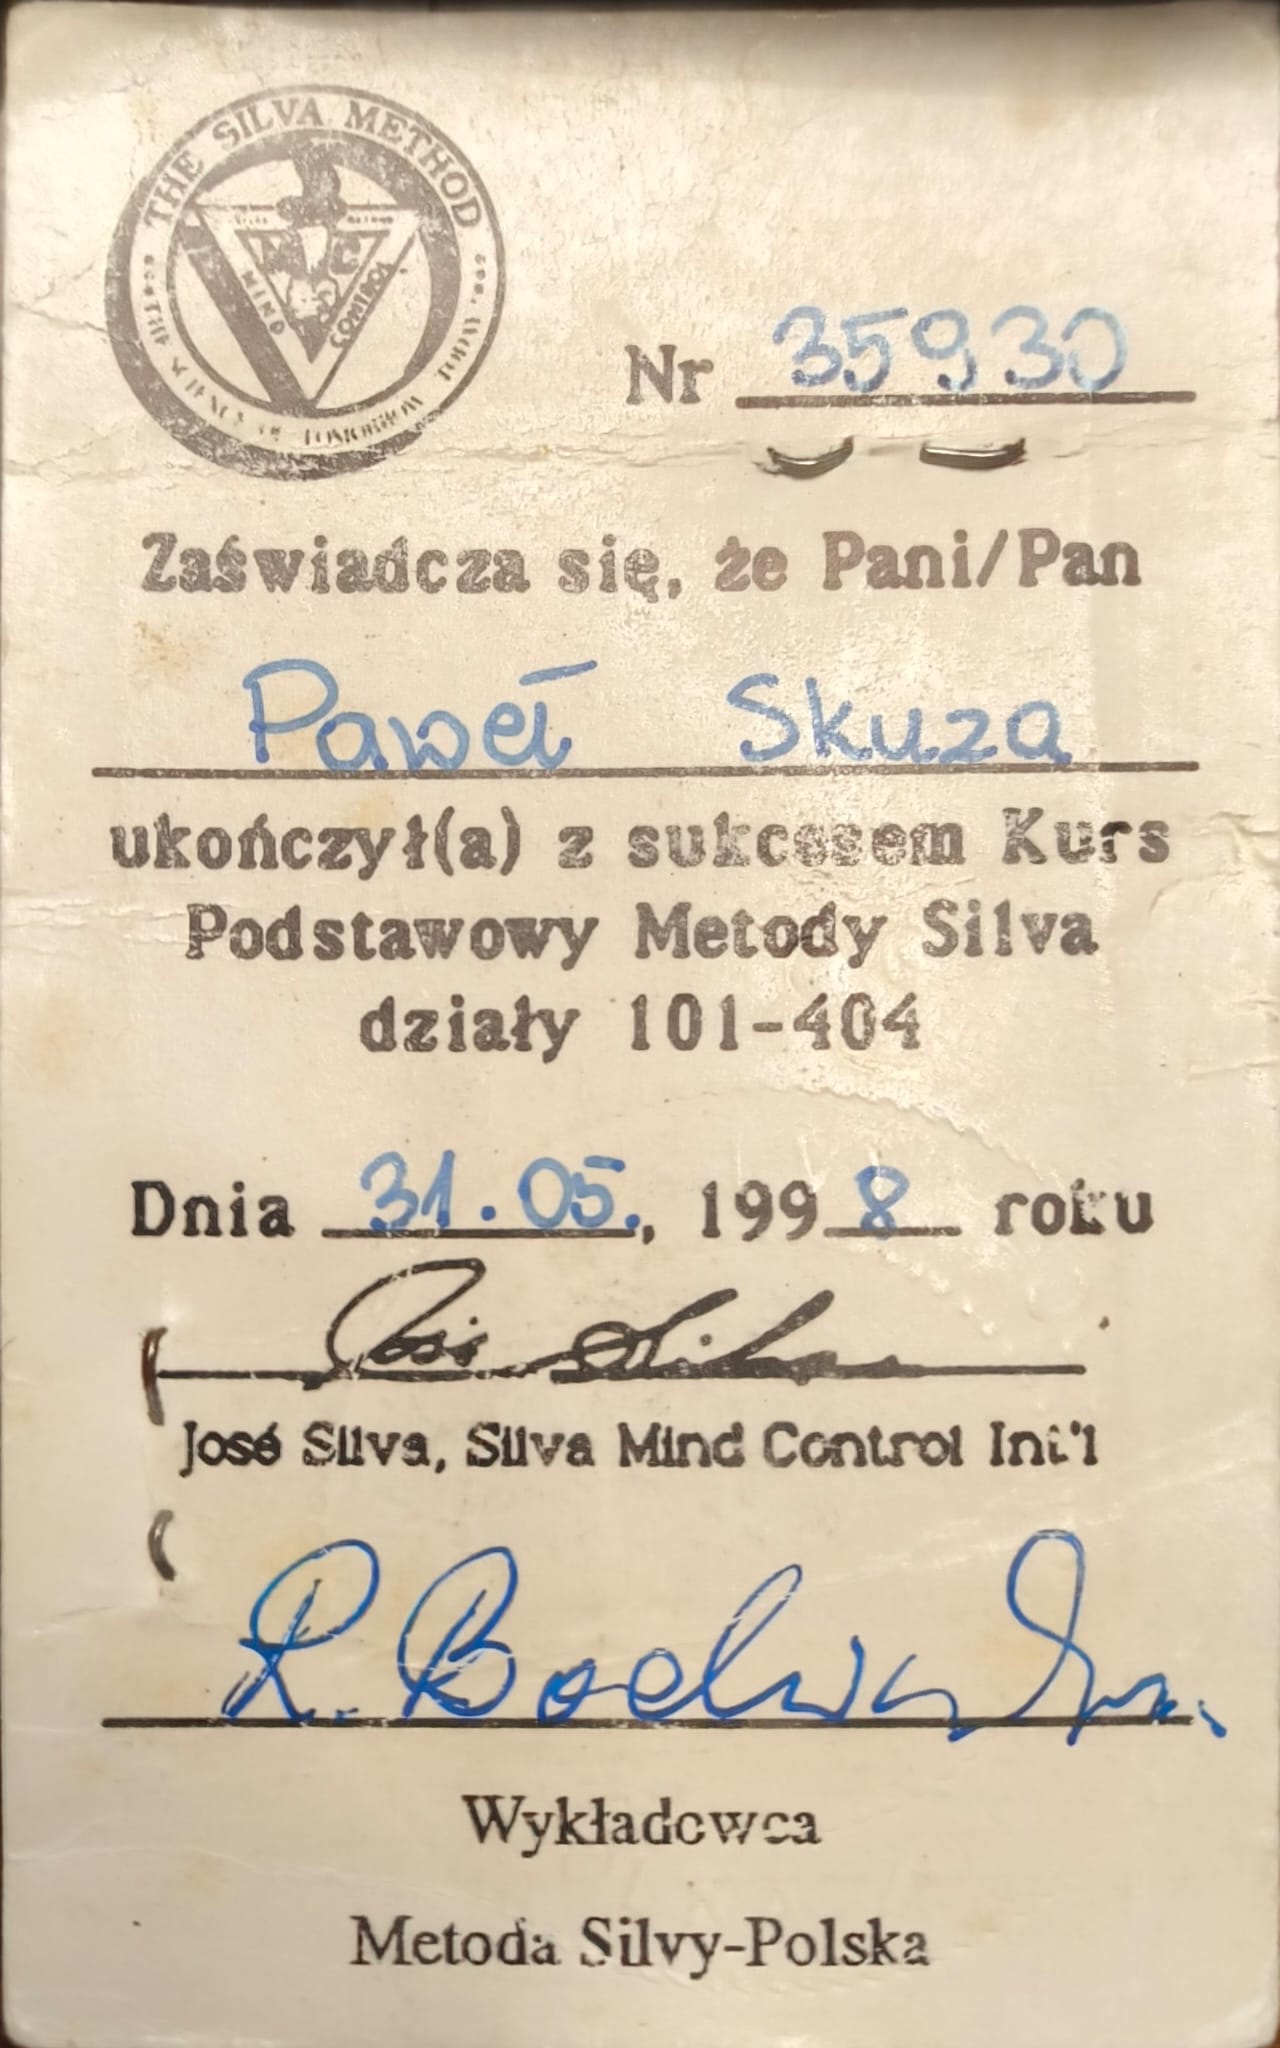 THE SILVA METHOD
MIND CONTROL
THE SCIENCE OF TOMORROW TODAY
Nr 35930
Zaświadcza się, że Pani/Pan
Paweł Skuza
ukończył(a) z sukcesem Kurs
Podstawowy Metody Silva
działy 101-404
Dnia 31.05., 1998 roku
José Silva
José Silva, Silva Mind Control Int'l
R.
Wykładowca
Metoda Silvy-Polska